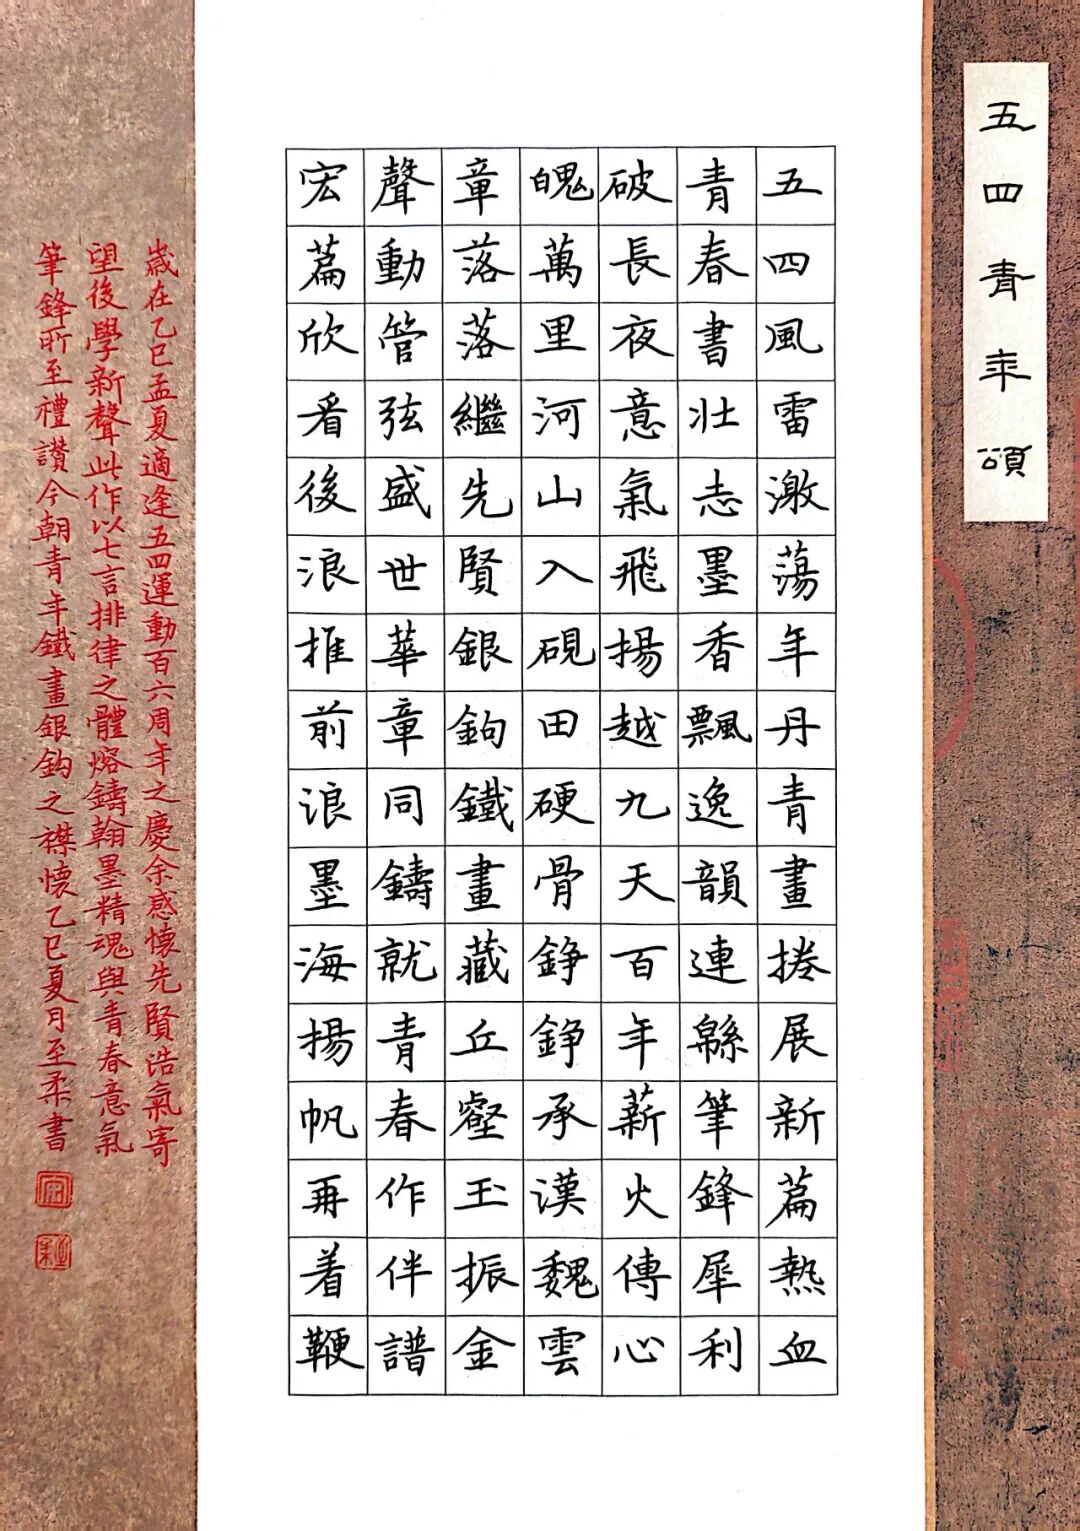 五四青年頌
五四風雷激蕩年丹青畫捲展新篇熱血
青春書壯志墨香飄逸韻連緜筆鋒犀利
破長夜意氣飛揚越九天百年薪火傳心
魄萬里河山入硯田硬骨錚錚承漢魏雲
章落落繼先賢銀鉤鐵畫藏丘壑玉振金
聲動管弦盛世華章同鑄就青春作伴譜
宏篇欣看後浪推前浪墨海揚帆再着鞭
歲在乙巳孟夏適逢五四運動百六周年之慶余感懷先賢浩氣寄
望後學新聲此作以七言排律之體熔鑄翰墨精魂與青春意氣
筆鋒所至禮讚今朝青年鐵畫銀鈎之襟懷乙巳夏月至柔書